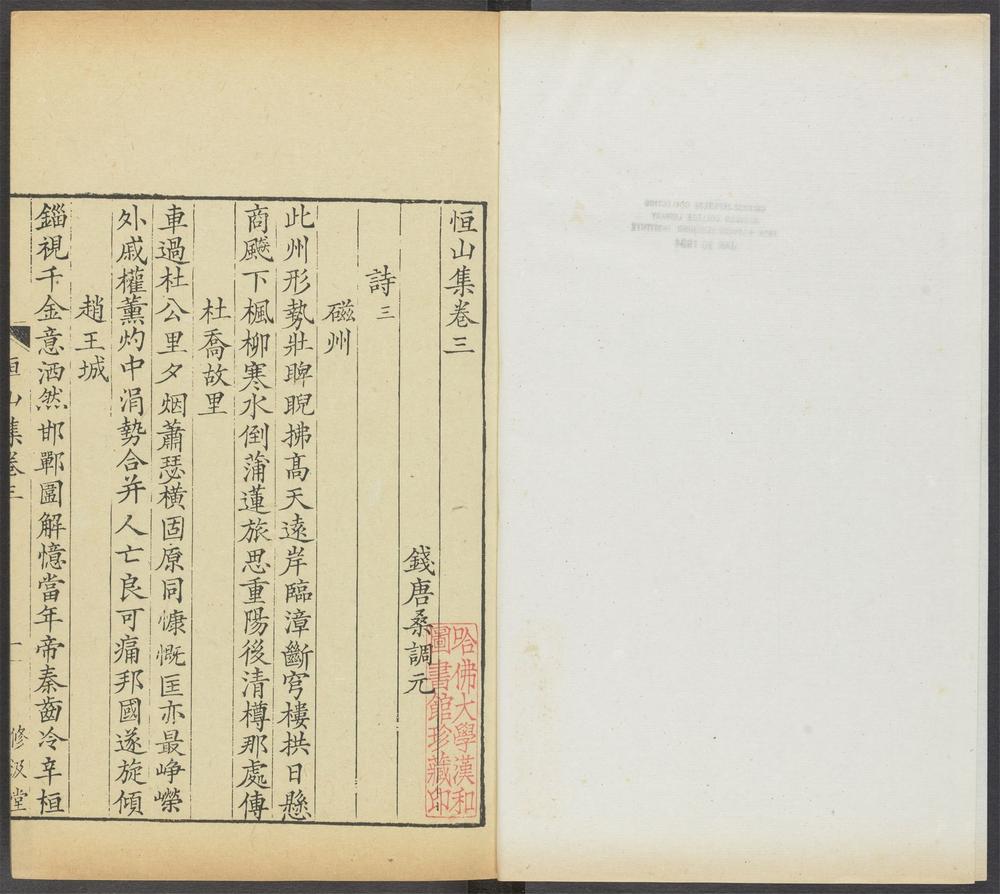 恒山集卷三
錢唐桑調元
詩三
磁州
此州形勢壯睥睨拂高天遠岸臨漳斷穹樓拱日懸
商飈下楓柳寒水倒蒲蓮旅思重陽後清樽那處傳
杜喬故里
車過杜公里夕烟蕭瑟橫固原同慷慨匡亦最崢嶸
外戚權薰灼中涓勢合并人亡良可痛邦國遂旋傾
趙王城
錙視千金意洒然邯鄲圍解憶當年帝秦齒冷辛桓
恒山集卷三
一
修汲堂
哈佛大學漢和
圖書館珍藏印